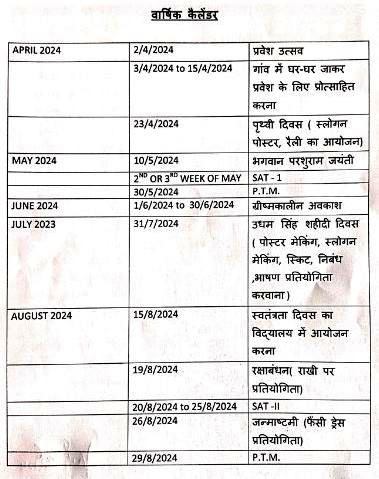 वार्षिक कैलेंडर
APRIL 2024 2/4/2024 प्रवेश उत्सव
3/4/2024 to 15/4/2024 गांव में घर-घर जाकर
प्रवेश के लिए प्रोत्साहित
करना
23/4/2024 पृथ्वी दिवस ( स्लोगन
पोस्टर, रैली का आयोजन)
MAY 2024 10/5/2024 भगवान परशुराम जयंती
2ND OR 3RD WEEK OF MAY SAT - 1
30/5/2024 P.T.M.
JUNE 2024 1/6/2024 to 30/6/2024 ग्रीष्मकालीन अवकाश
JULY 2023 31/7/2024 उधम सिंह शहीदी दिवस
( पोस्टर मेकिंग, स्लोगन
मेकिंग, स्किट, निबंध
,भाषण प्रतियोगिता
करवाना )
AUGUST 2024 15/8/2024 स्वतंत्रता दिवस का
विद्यालय में आयोजन
करना
19/8/2024 रक्षाबंधन( राखी पर
प्रतियोगिता)
20/8/2024 to 25/8/2024 SAT -II
26/8/2024 जन्माष्टमी (फैंसी ड्रेस
प्रतियोगिता)
29/8/2024 P.T.M.